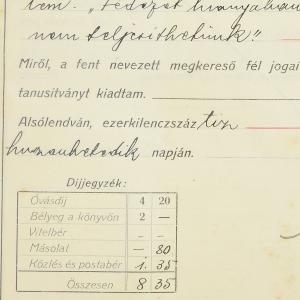 tem. „Fedezet hiányában
nem teljesithetünk."
Miről, a fent nevezett megkereső fél jogai
tanusítványt kiadtam.
Alsólendván, ezerkilenczszáz tiz
huszonhetedik napján.
Díjjegyzék:
Óvásdíj 4 20
Bélyeg a könyvön 2 —
Vitelbér — —
Másolat — 80
Közlés és postabér 1. 35
Összesen 8 35